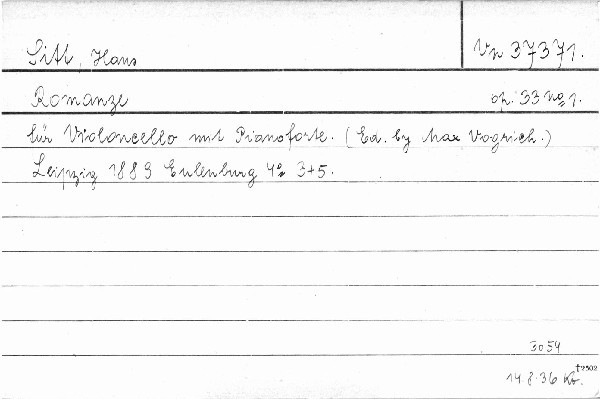 Sitt, Hans Vn 37371.
Romanze op. 33 No 1.
für Violoncello mit Pianoforte. (Ed. by Max Vogrich.)
Leipzig 1889 Eulenburg 4° 3+5.
3059
14.8.36 Kr.
†2502